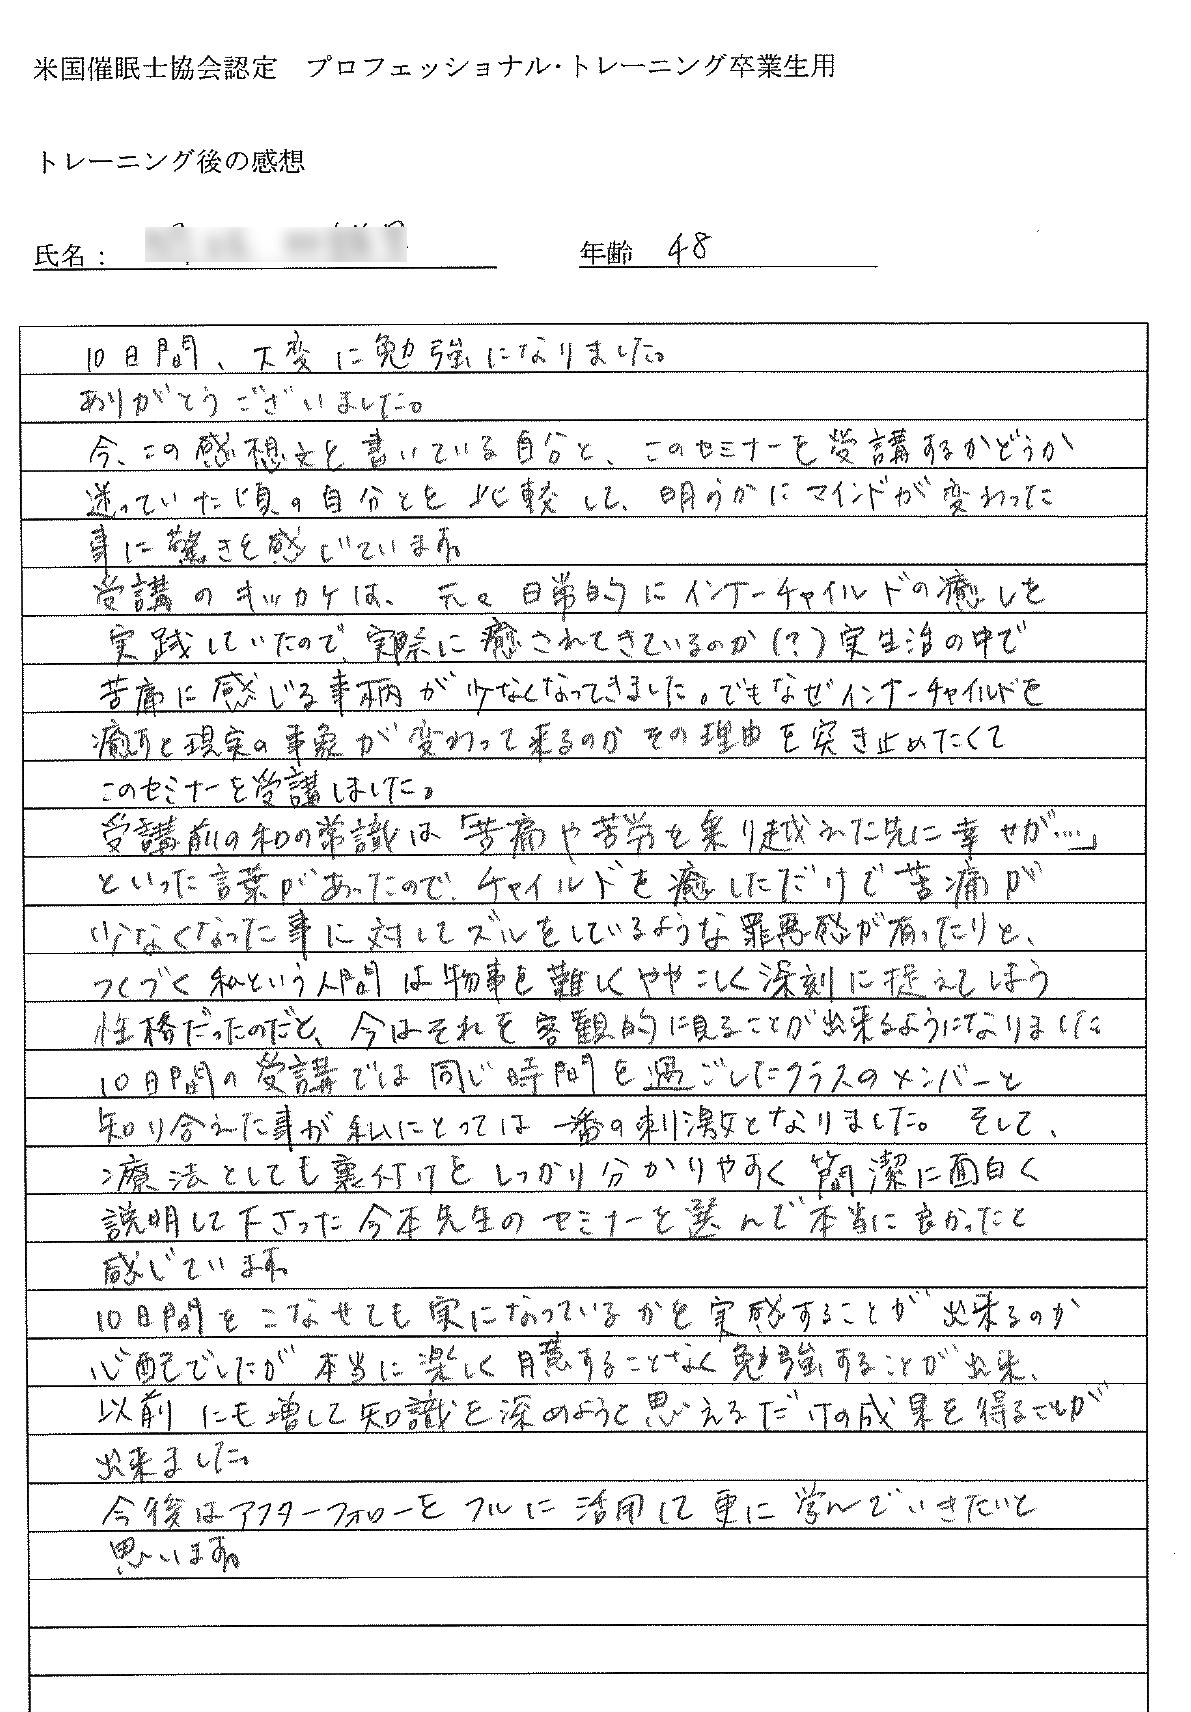 米国催眠士協会認定　プロフェッショナル・トレーニング卒業生用
トレーニング後の感想
氏名：
年齢　48
10日間、大変に勉強になりました。
ありがとうございました。
今、この感想文を書いている自分と、このセミナーを受講するかどうか
迷っていた頃の自分とを比較して、明らかにマインドが変わった
事に驚きを感じています。
受講のキッカケは、元々日常的にインナーチャイルドの癒しを
実践していたので、実際に癒されてきているのか(?)実生活の中で
苦痛に感じる事柄が少なくなってきました。でもなぜインナーチャイルドを
癒すと現実の事象が変わって来るのかその理由を突き止めたくて
このセミナーを受講しました。
受講前の私の常識は「苦痛や苦労を乗り越えた先に幸せが…」
といった言葉があったので、チャイルドを癒しただけで苦痛が
少なくなった事に対してズルをしているような罪悪感が有ったりと、
つくづく私という人間は物事を難しくややこしく深刻に捉えてしまう
性格だったのだと、今はそれを客観的に見ることが出来るようになりました
10日間の受講では同じ時間を過ごしたクラスのメンバーと
知り合えた事が私にとっては一番の刺激となりました。そして、
療法としても裏付けをしっかり分かりやすく簡潔に面白く
説明して下さった今本先生のセミナーを選んで本当に良かったと
感じています。
10日間をこなせても実になっているかを実感することが出来るのか
心配でしたが本当に楽しく臆することなく勉強することが出来、
以前にも増して知識を深めようと思えるだけの成果を得ることが
出来ました。
今後はアフターフォローをフルに活用して更に学んでいきたいと
思います。